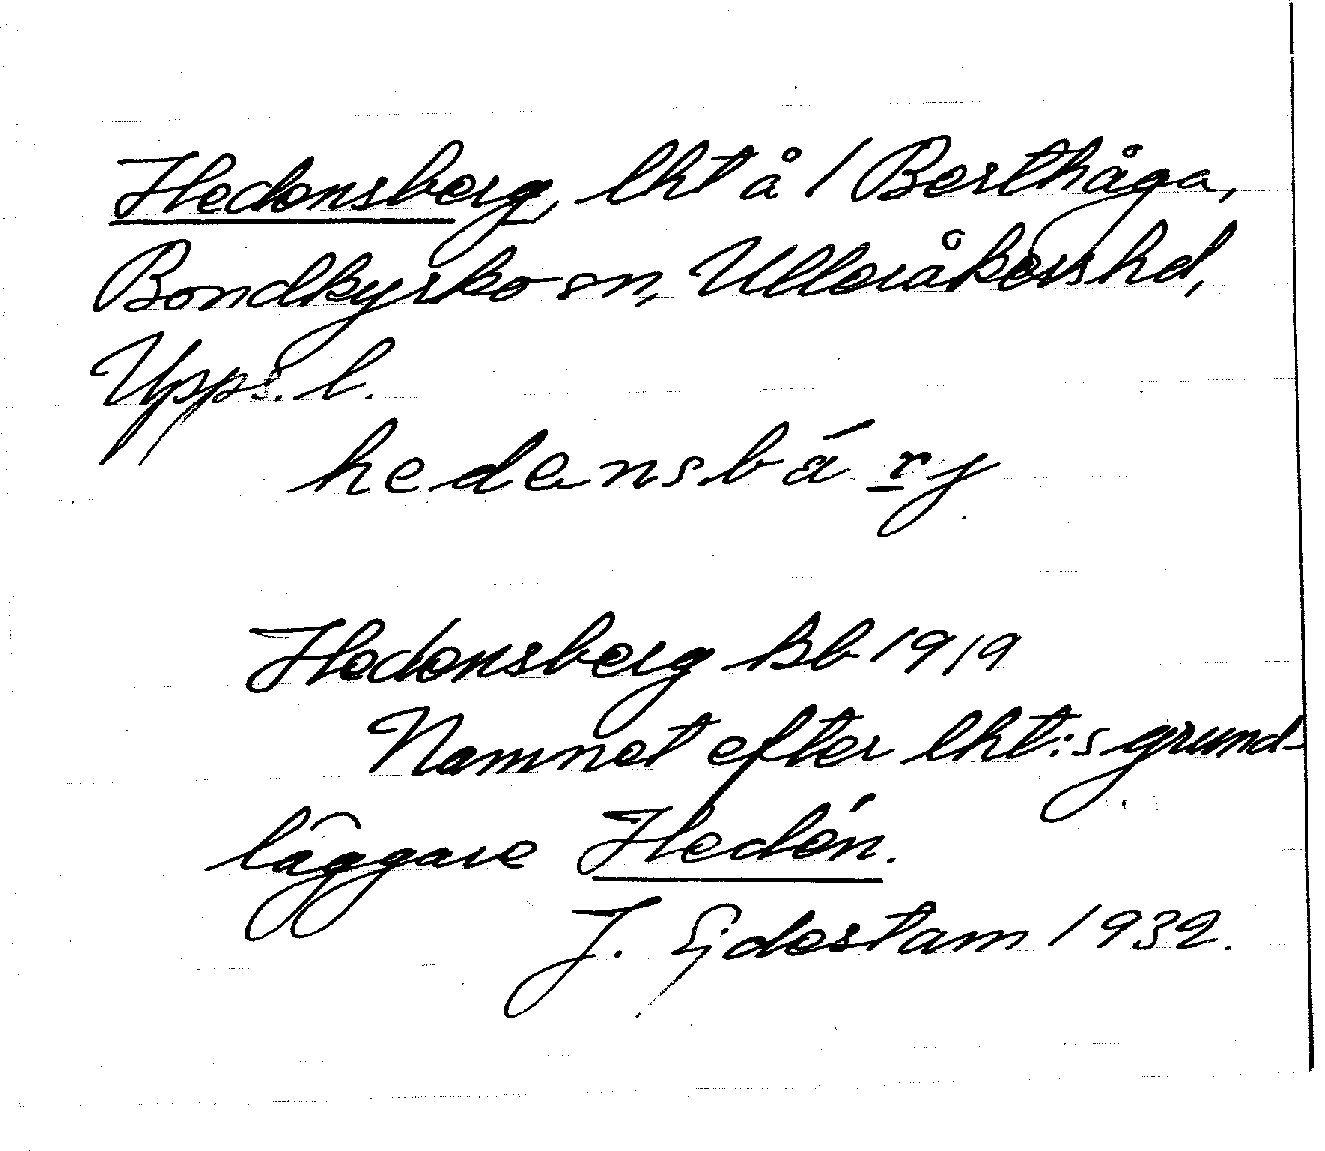 Hedensberg, lht å 1 Berthåga,
Bondkyrko sn, Ulleråkers hd,
Upps. l.
hedensbárj
Hedensberg Bb 1919
Namnet efter lht:s grund-
läggare Hedén.
J. Sjdestam 1932.